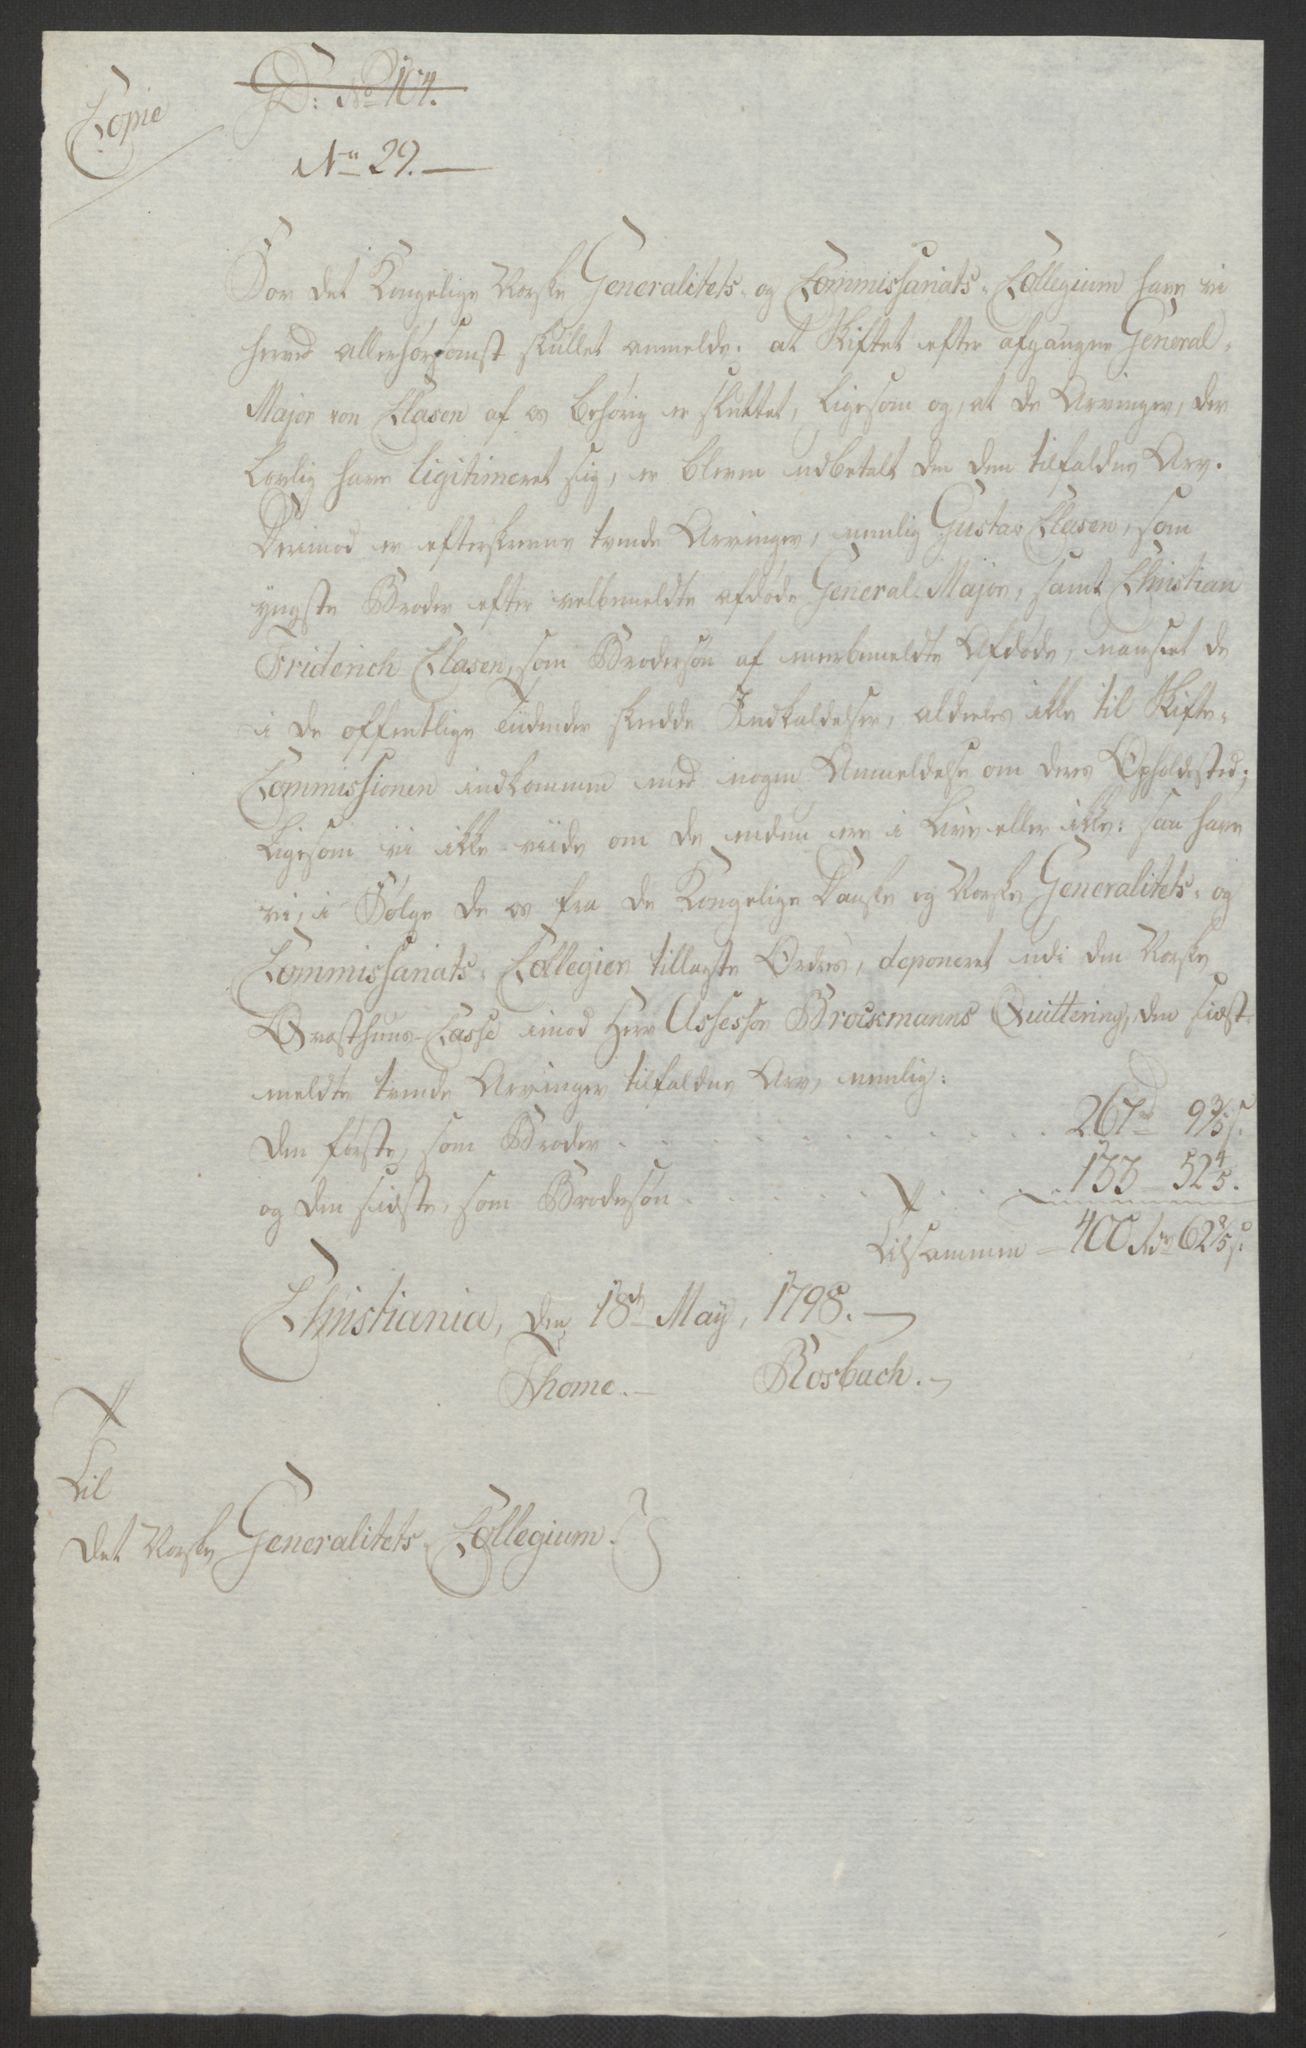 Copie
D: No 104.
No 29.
For det Kongelige Norske Generalitets- og Commissariats-Collegium have vi
herved allerhørsomst skullet anmelde: at Skiftet efter afgangne General-
Major von Clasen af os behørig er sluttet, ligesom og, at de Arvinger, der
lovlig have ligitimeret sig, er bleven udbetalt den dem tilfaldne Arv.
Derimod er efterskrevne tvende Arvinger, nemlig Gustav Clasen, som
yngste Broder efter velbemeldte afdøde General-Major, samt Christian
Friderich Clasen, som Brodersøn af meerbemeldte Afdøde, uanseet de
i de offentlige Tidender skeedde Indkaldelser, aldeeles ikke til Skifte-
Commissionen indkommen med nogen Anmeldelse om deres Opholdssted;
Ligesom vi ikke viide om de endnu ere i Live eller ikke: saa have
vi, i Følge de os fra de Kongelige Danske og Norske Generalitets- og
Commissariats-Collegier tillagte Ordres, deponeret udi den Norske
Qvæsthuus-Casse imod Herr Assessor Brockmanns Quittering, den sidst-
meldte tvende Arvinger tilfaldne Arv, nemlig:
den første, som Broder . . . 267 rd 9 3/5 s.
og den sidste, som Brodersøn . . . 133 52 4/5.
Tilsammen 400 Rdr 62 2/5 s.
Christiania, den 18de May, 1798.
Thome. Rosbach.
Til
det Norske Generalitets-Collegium.